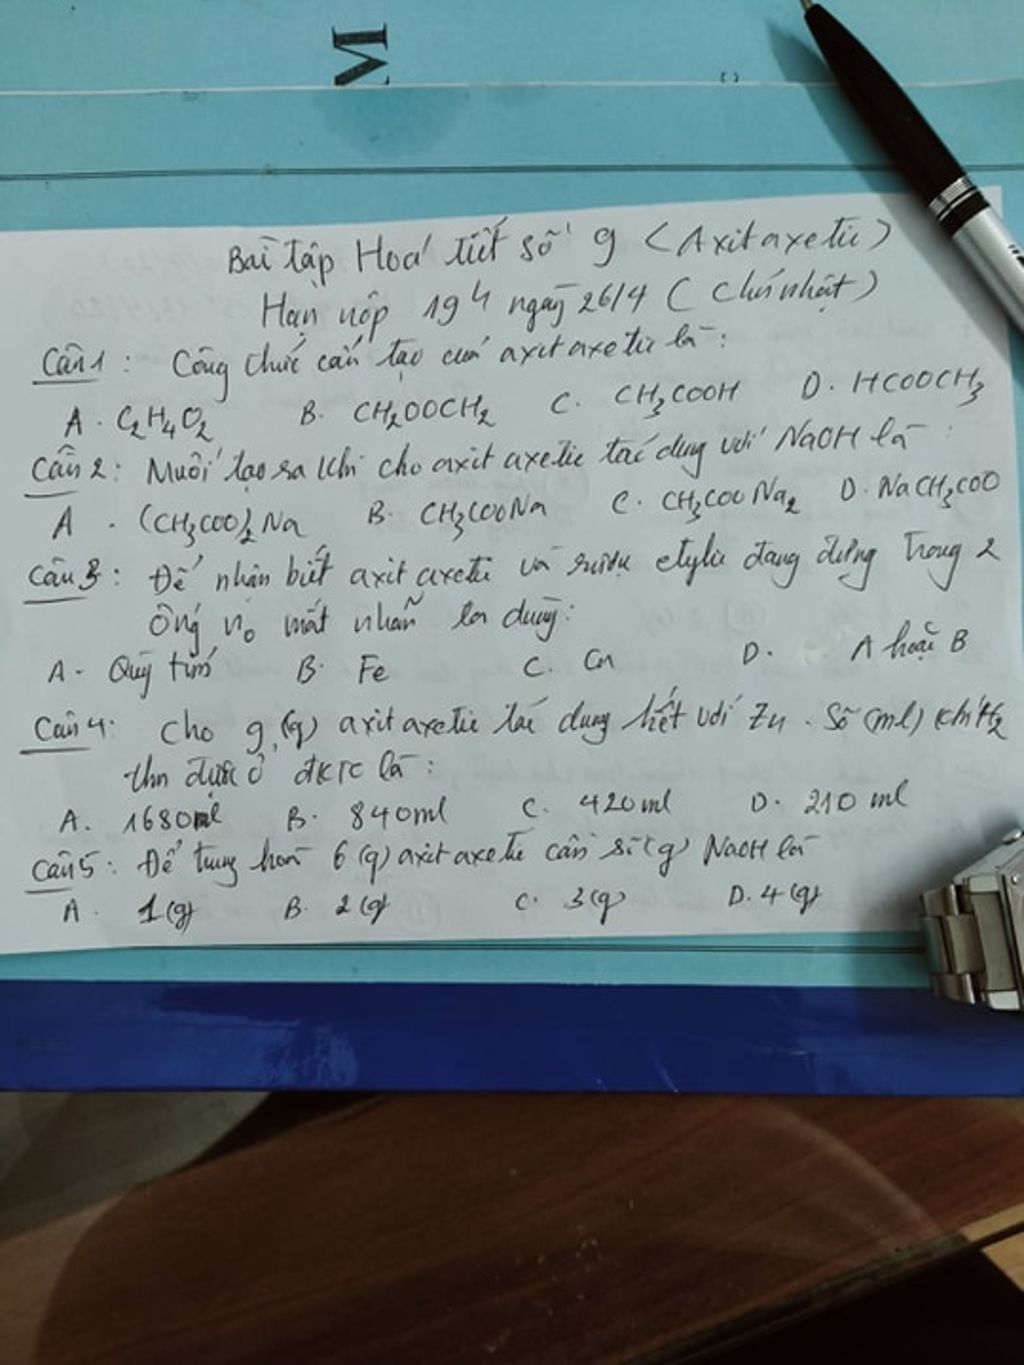 M
Bài tập Hoá tiết số 9 (Axit axetic)
Hạn nộp 19h ngày 26/4 (Chủ nhật)
Câu 1: Công thức cấu tạo của axit axetic là:
A. C2H4O2 B. CH2OOCH2 C. CH3COOH D. HCOOCH3
Câu 2: Muối tạo ra khi cho axit axetic tác dụng với NaOH là:
A. (CH3COO)2Na B. CH3COONa C. CH3COONa2 D. NaCH3COO
Câu 3: Để nhận biết axit axetic và rượu etylic đang đựng trong 2
ống no mất nhãn ta dùng:
A. Quỳ tím B. Fe C. Cu D. A hoặc B
Câu 4: Cho 9 (g) axit axetic tác dụng hết với Zn. Số (ml) khí H2
thu được ở đktc là:
A. 1680ml B. 840ml C. 420ml D. 210 ml
Câu 5: Để trung hoà 6 (g) axit axetic cần số (g) NaOH là
A. 1(g) B. 2(g) C. 3(g) D. 4(g)